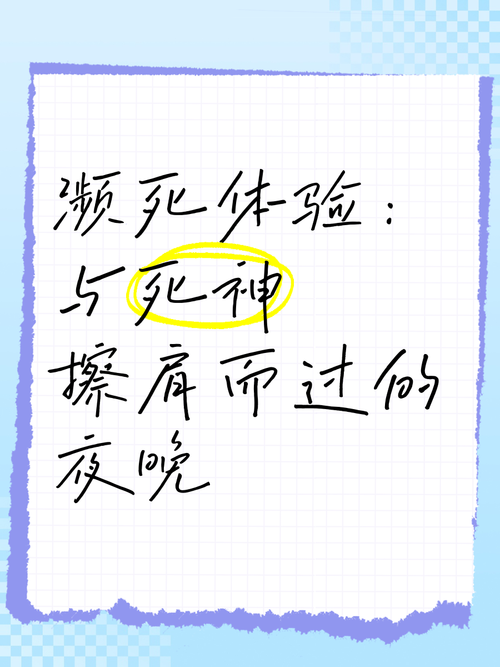 濒死体验：
与死神
擦肩而过的
夜晚